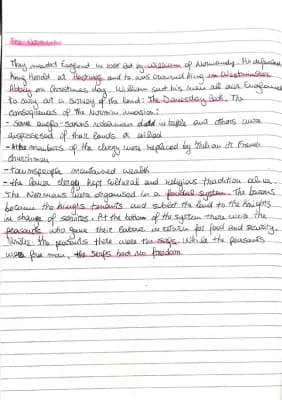 The Normans
They invaded England in 1066 led by William of Normandy. He defeated
King Harold at Hastings and he was crowned king in Westminster
Abbey on Christmas day. William sent his men all over England
to carry out a survey of the land: The Domesday Book. The
consequences of the Norman invasion:
- some anglo-saxons noblemen died in battle and others were
dispossessed of their lands or killed
- the members of the clergy were replaced by Italian or French
churchmen
- townspeople maintained wealth
- the lower clergy kept cultural and religious tradition alive.
The Normans were organised in a feudal system. The barons
became the king's tenants and sublet the land to the knights
in change of services. At the bottom of the system there were the
peasants who gave their labour in return for food and security.
Under the peasants there were the serfs. While the peasants
were free men, the serfs had no freedom